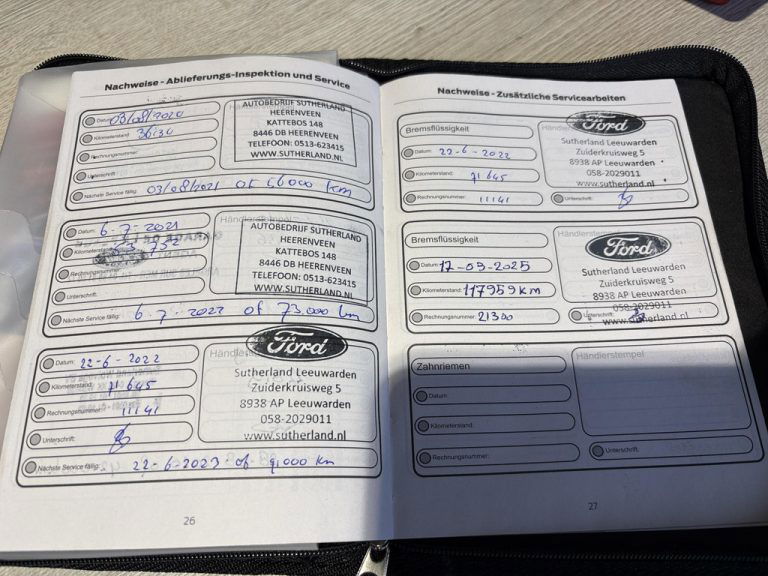 Nachweise - Ablieferungs-Inspektion und Service
Datum: 03/08/2020
Kilometerstand: 3630
Rechnungsnummer:
Unterschrift:
AUTOBEDRIJF SUTHERLAND
HEERENVEEN
KATTEBOS 148
8446 DB HEERENVEEN
TELEFOON: 0513-623415
WWW.SUTHERLAND.NL
Nächste Service fällig: 03/08/2021 of 56000 km
Datum: 6-7-2021
Kilometerstand:
Rechnungsnummer:
Unterschrift:
Händlerstempel
AUTOBEDRIJF SUTHERLAND
HEERENVEEN
KATTEBOS 148
8446 DB HEERENVEEN
TELEFOON: 0513-623415
WWW.SUTHERLAND.NL
Nächste Service fällig: 6-7-2022 of 73.000 km
Datum: 22-6-2022
Kilometerstand: 71645
Rechnungsnummer: 11141
Unterschrift:
Ford
Sutherland Leeuwarden
Zuiderkruisweg 5
8938 AP Leeuwarden
058-2029011
www.sutherland.nl
Nächste Service fällig: 22-6-2023 of 91.000 km
26
Nachweise - Zusätzliche Servicearbeiten
Bremsflüssigkeit
Datum: 22-6-2022
Kilometerstand: 71645
Rechnungsnummer: 11141
Ford
Sutherland Leeuwarden
Zuiderkruisweg 5
8938 AP Leeuwarden
058-2029011
www.sutherland.nl
Unterschrift:
Bremsflüssigkeit
Datum: 17-03-2025
Kilometerstand: 117959 km
Rechnungsnummer: 21300
Ford
Sutherland Leeuwarden
Zuiderkruisweg 5
8938 AP Leeuwarden
058-2029011
www.sutherland.nl
Unterschrift:
Zahnriemen
Datum:
Kilometerstand:
Rechnungsnummer:
Händlerstempel
Unterschrift:
27